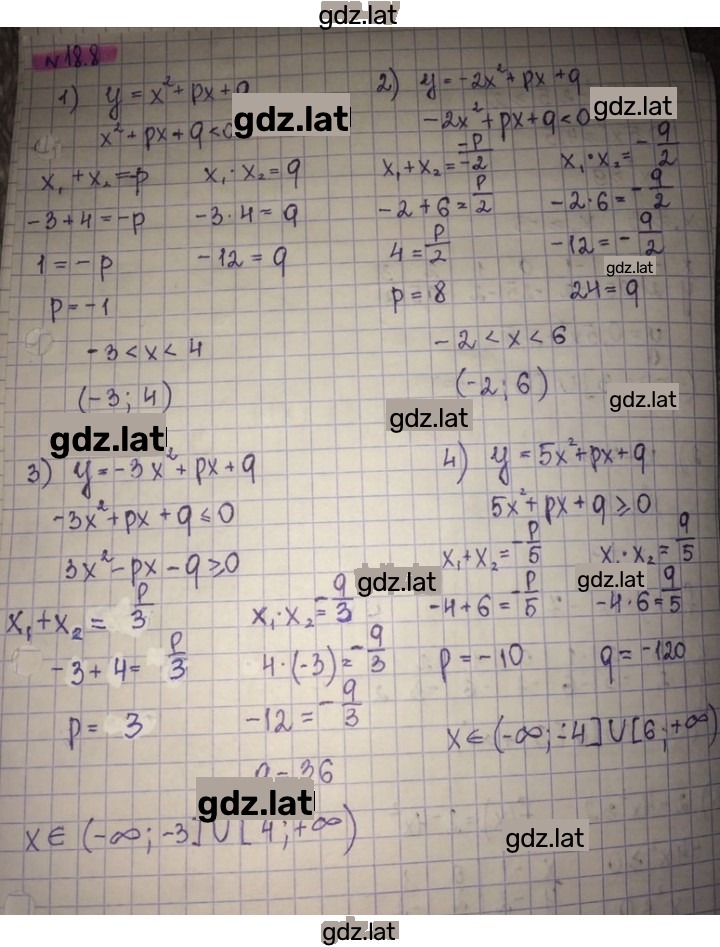 gdz.lat
N 18.8
1) y = x² + px + q
x² + px + q < 0
x₁ + x₂ = -p x₁ · x₂ = q
-3 + 4 = -p -3 · 4 = q
1 = -p -12 = q
p = -1
-3 < x < 4
(-3; 4)
gdz.lat
2) y = -2x² + px + q
gdz.lat
-2x² + px + q < 0
x₁ + x₂ = -p/-2 x₁ · x₂ = -q/2
-2 + 6 = p/2 -2 · 6 = -q/2
4 = p/2 -12 = -q/2
gdz.lat
p = 8 24 = q
-2 < x < 6
(-2; 6)
gdz.lat
gdz.lat
gdz.lat
3) y = -3x² + px + q
-3x² + px + q ≤ 0
3x² - px - q ≥ 0
x₁ + x₂ = p/3 x₁ · x₂ = -q/3
-3 + 4 = p/3 4 · (-3) = -q/3
p = 3 -12 = -q/3
q = 36
gdz.lat
x ∈ (-∞; -3] ∪ [4; +∞)
4) y = 5x² + px + q
5x² + px + q ≥ 0
x₁ + x₂ = -p/5 x₁ · x₂ = q/5
gdz.lat
gdz.lat
-4 + 6 = -p/5 -4 · 6 = q/5
p = -10 q = -120
x ∈ (-∞; -4] ∪ [6; +∞)
gdz.lat
gdz.lat